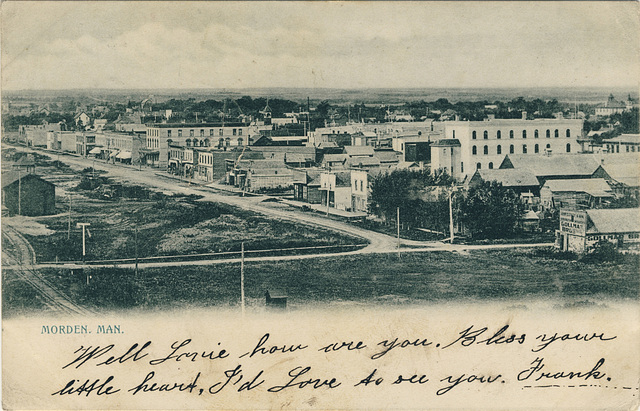 MORDEN. MAN.
Well Lovie how are you. Bless your
little heart, I'd Love to see you. Frank.